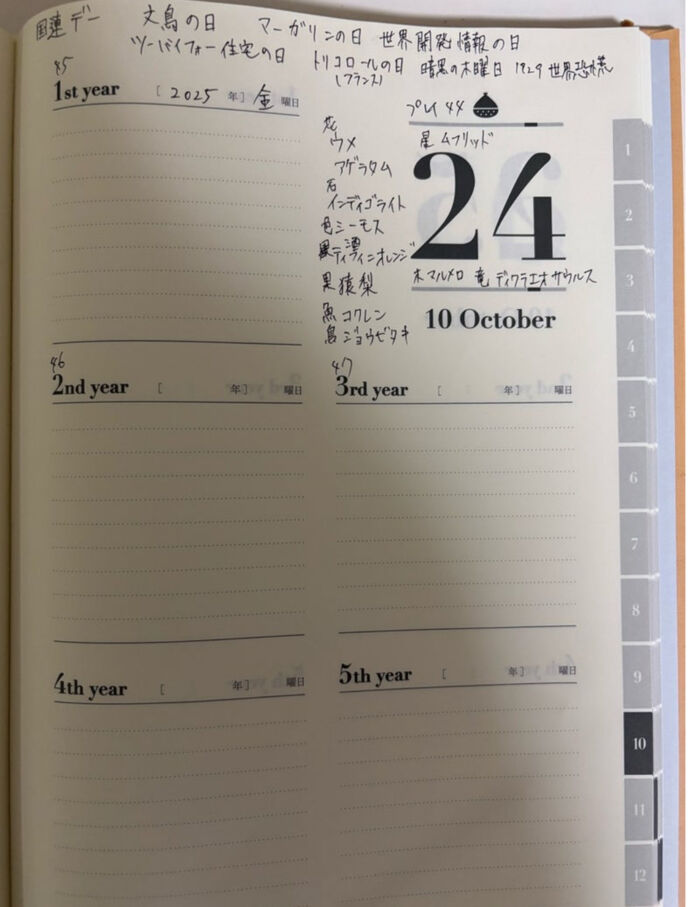 国連デー 文鳥の日 マーガリンの日 世界開発情報の日
ツーバイフォー住宅の日 トリコロールの日 暗黒の木曜日 1929 世界恐慌
(フランス)
45
1st year [ 2025 年] 金 曜日
プレイ 44
花
ウメ
星 ムフリッド
アゲラタム
石
インディゴライト
色 シーモス
酒 ティフィンオレンジ
24
猿梨
木 マルメロ 竜 ディクラエオサウルス
魚 コクレン
鳥 ジョウビタキ
10 October
46
2nd year [ 年] 曜日
47
3rd year [ 年] 曜日
4th year [ 年] 曜日
5th year [ 年] 曜日
1
2
3
4
5
6
7
8
9
10
11
12